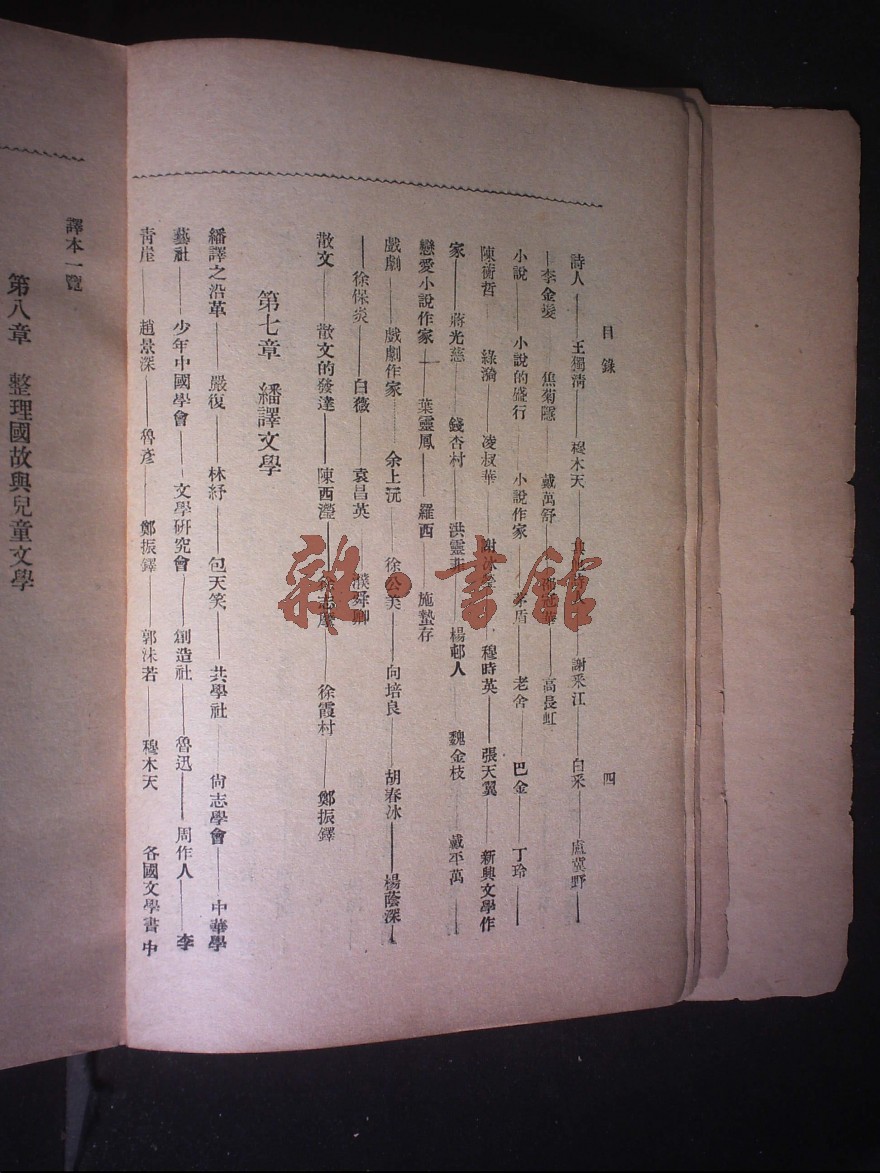 目錄
四
詩人——王獨淸——穆木天——謝采江——白采——盧冀野——
—李金髮——焦菊隱——戴萬舒——高長虹
小說——小說的盛行——小說作家——茅盾——老舍——巴金——丁玲——
陳衡哲——綠漪——凌叔華——謝冰瑩——穆時英——張天翼——新興文學作
家——蔣光慈——錢杏村——洪靈菲——楊邨人——魏金枝——戴平萬——
戀愛小說作家——葉靈鳳——羅西——施蟄存
戲劇——戲劇作家——余上沅——徐公美——向培良——胡春冰——楊蔭深—
——徐保炎——白薇——袁昌英——濮舜卿
散文——散文的發達——陳西瀅——徐志摩——徐霞村——鄭振鐸
第七章 繙譯文學
繙譯之沿革——嚴復——林紓——包天笑——共學社——尙志學會——中華學
藝社——少年中國學會——文學硏究會——創造社——魯迅——周作人——李
靑崖——趙景深——魯彥——鄭振鐸——郭沫若——穆木天——各國文學書中
譯本一覽
第八章 整理國故與兒童文學
雜·書館